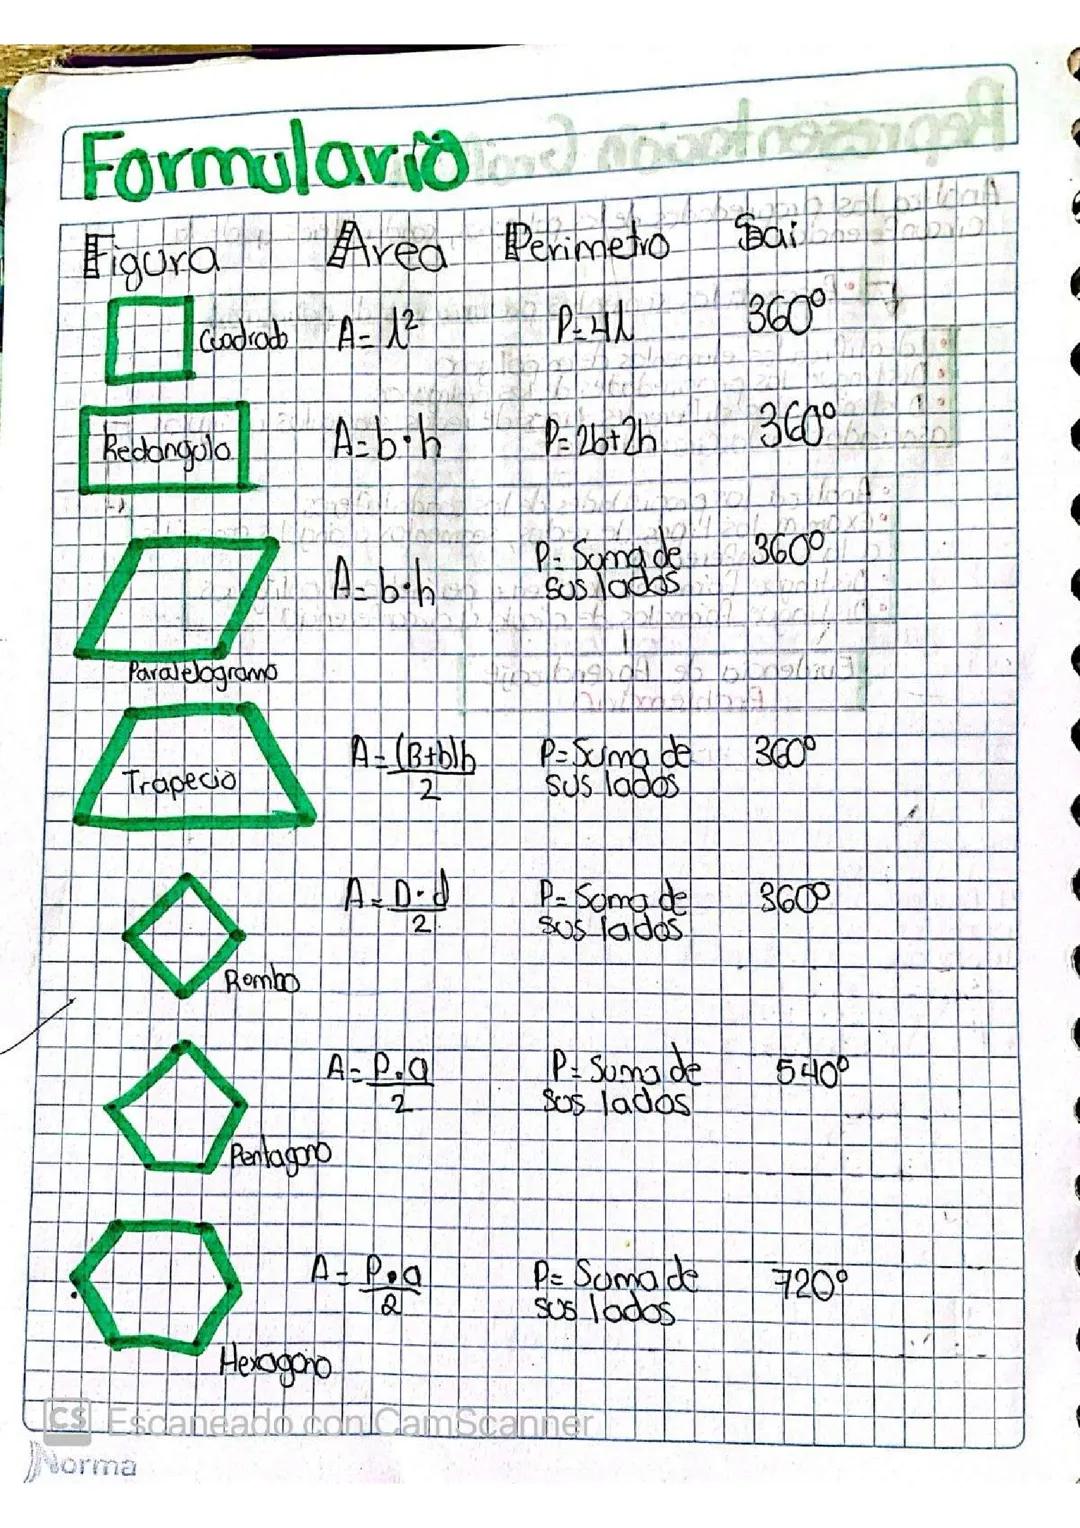 Formulario
Figura Area Perimetro Sai
Cuadrado A= l² P=4l 360°
Rectangulo A=b·h P=2b+2h 360°
Paralelogramo A=b·h P= Suma de sus lados 360°
Trapecio A=(B+b)h/2 P=Suma de sus lados 360°
Rombo A=D·d/2 P= Suma de sus lados 360°
Pentagono A=P.a/2 P= Suma de sus lados 540°
Hexagono A=P.a/2 P= Suma de sus lados 720°
CS Escaneado con CamScanner
Norma